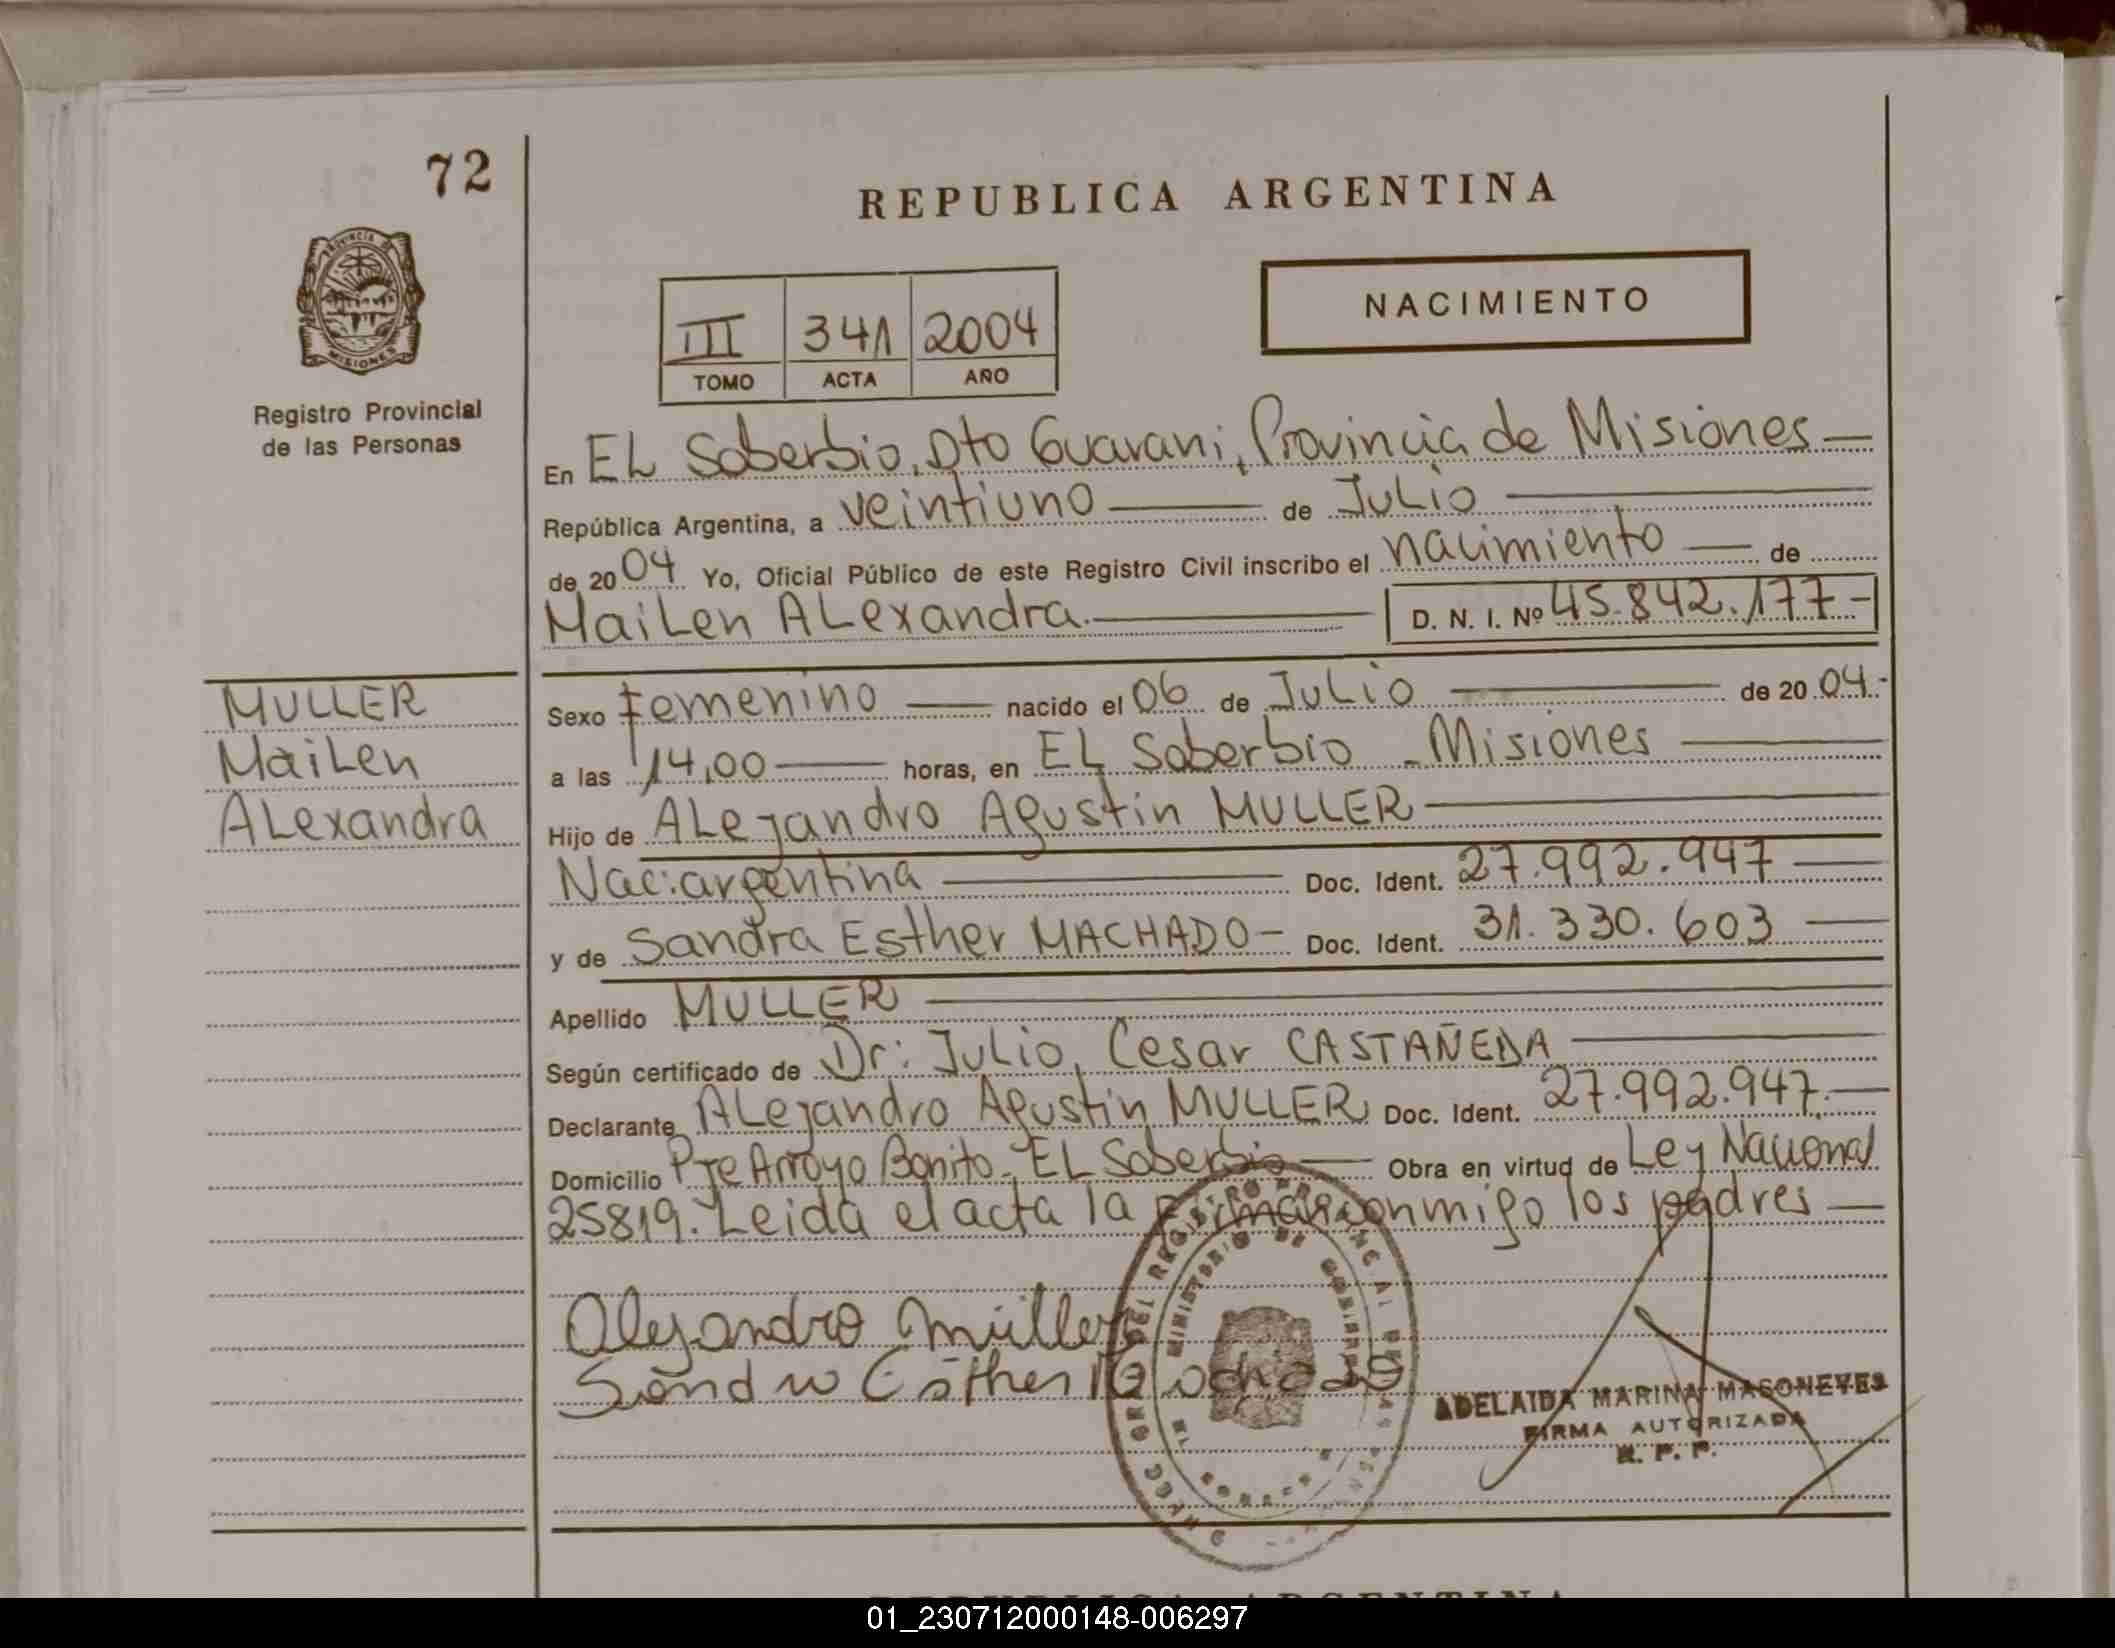 72
REPUBLICA ARGENTINA
PROVINCIA DE
MISIONES
Registro Provincial
de las Personas
III 341 2004
TOMO ACTA AÑO
NACIMIENTO
En EL Soberbio, Dto Guarani, Provincia de Misiones
República Argentina, a veintiuno de Julio
de 2004 Yo, Oficial Público de este Registro Civil inscribo el nacimiento de
Mailen Alexandra. D. N. I. Nº 45.842.177-
MULLER
Mailen
Alexandra
Sexo femenino nacido el 06 de Julio de 2004.-
a las 14,00 horas, en EL Soberbio - Misiones
Hijo de Alejandro Agustin MULLER
Nac: argentina Doc. Ident. 27.992.947
y de Sandra Esther MACHADO- Doc. Ident. 31.330.603
Apellido MULLER
Según certificado de Dr: Julio, Cesar CASTAÑEDA
Declarante Alejandro Agustin MULLER Doc. Ident. 27.992.947.-
Domicilio Pje Arroyo Bonito - EL Soberbio Obra en virtud de Ley Nacional
25819. Leida el acta la firman conmigo los padres
Alejandro Müller
Sandra Esther Machado
ADELAIDA MARINA MASONEVES
FIRMA AUTORIZADA
R. P. P.
REPUBLICA ARGENTINA
01_230712000148-006297